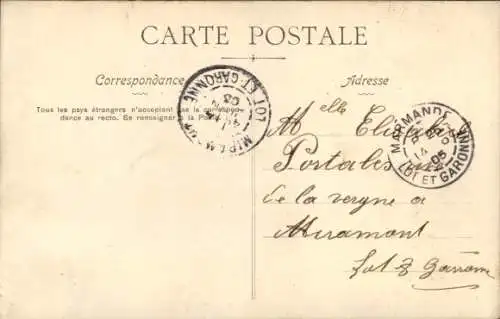 CARTE POSTALE
Correspondance
Adresse
Tous les pays étrangers n'acceptent pas la correspon-
dance au recto. Se renseigner à la Poste
LOT ET GARONNE
MARMANDE
05
LOT ET GARONNE
Melle
de la vergne a
Miramont
Lot & Garonne